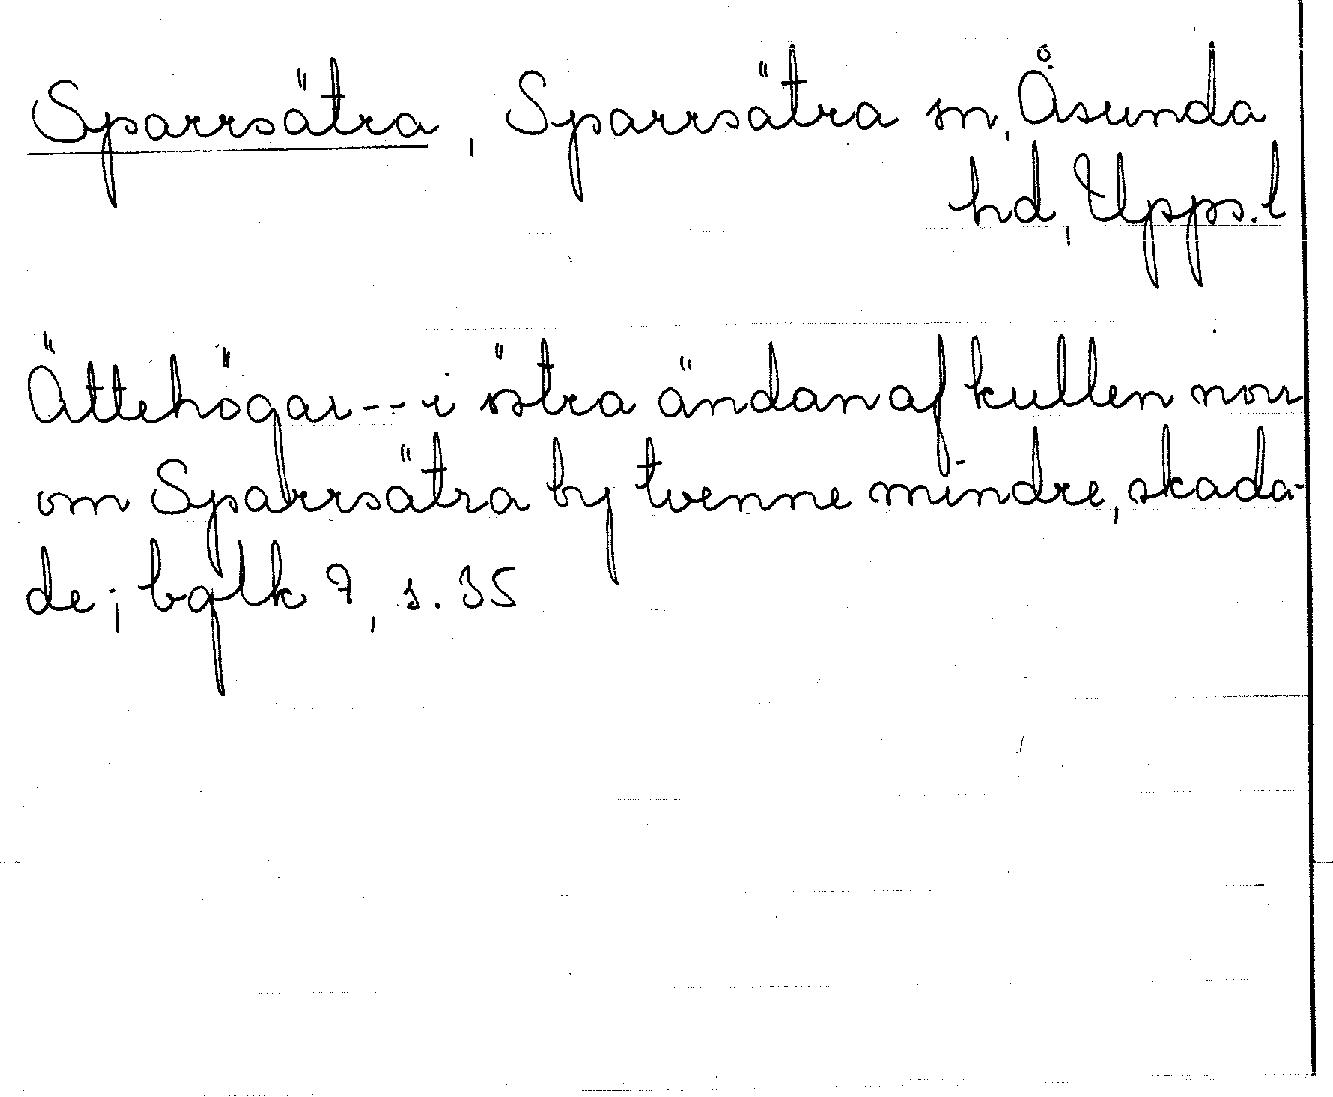 Sparrsätra, Sparrsätra sn, Åsunda
hd, Upps. l
Ättehögar--i östra ändan af kullen norr
om Sparrsätra by tvenne mindre, skada-
de; bqlk 7, s. 35